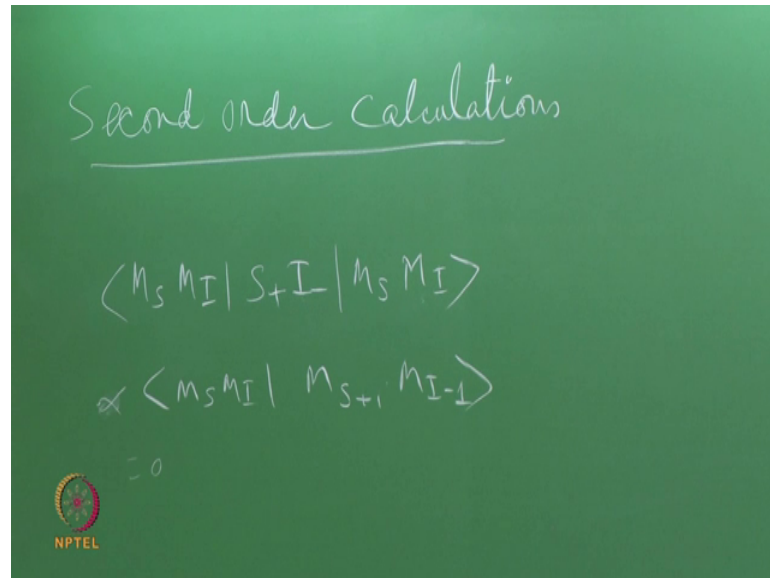 Second order calculations
⟨M_S M_I | S_+ I_- | M_S M_I⟩
∝ ⟨M_S M_I | M_{S+1} M_{I-1}⟩
= 0
NPTEL